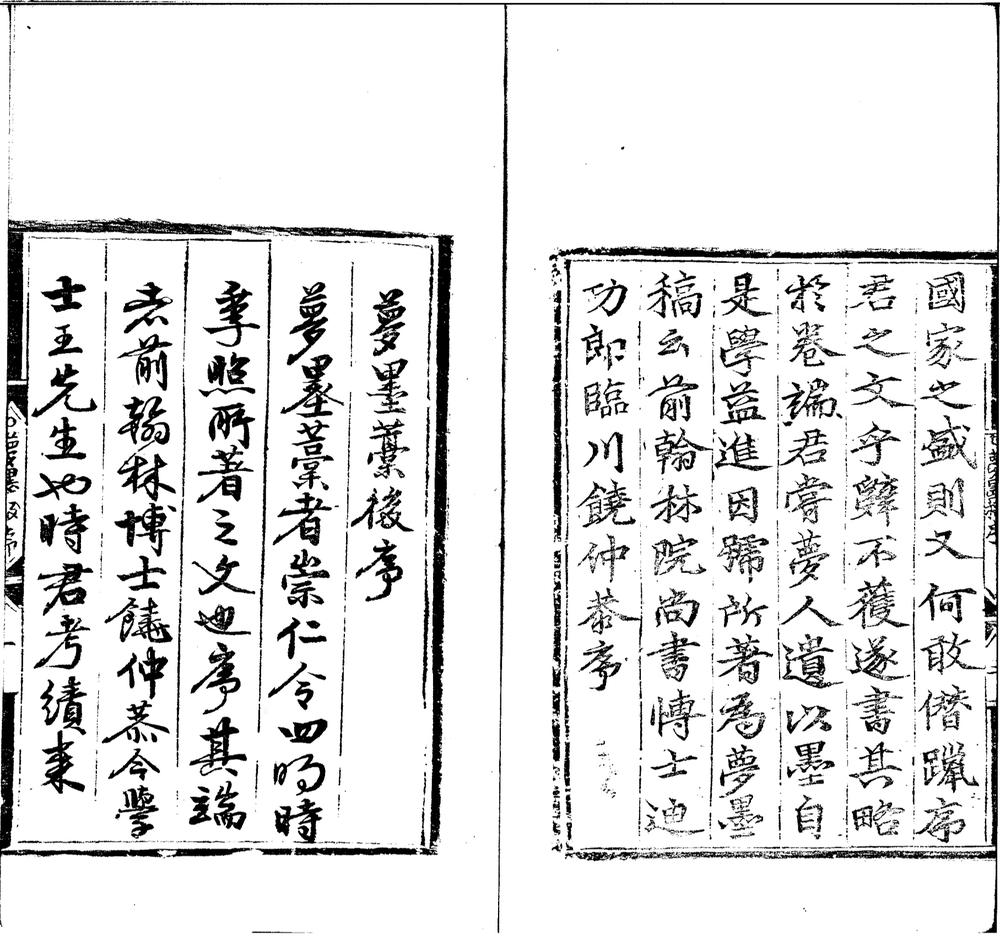 國家之盛則又何敢僭躐序
君之文乎辭不獲遂書其略
於卷端君嘗夢人遺以墨自
是學益進因號所著為夢墨
稿云前翰林院尚書博士迪
功郎臨川饒仲恭序
夢墨藁後序
夢墨藁者崇仁令四明時
季照所著之文也序其端
者前翰林博士饒仲恭今學
士王先生也時君考績來